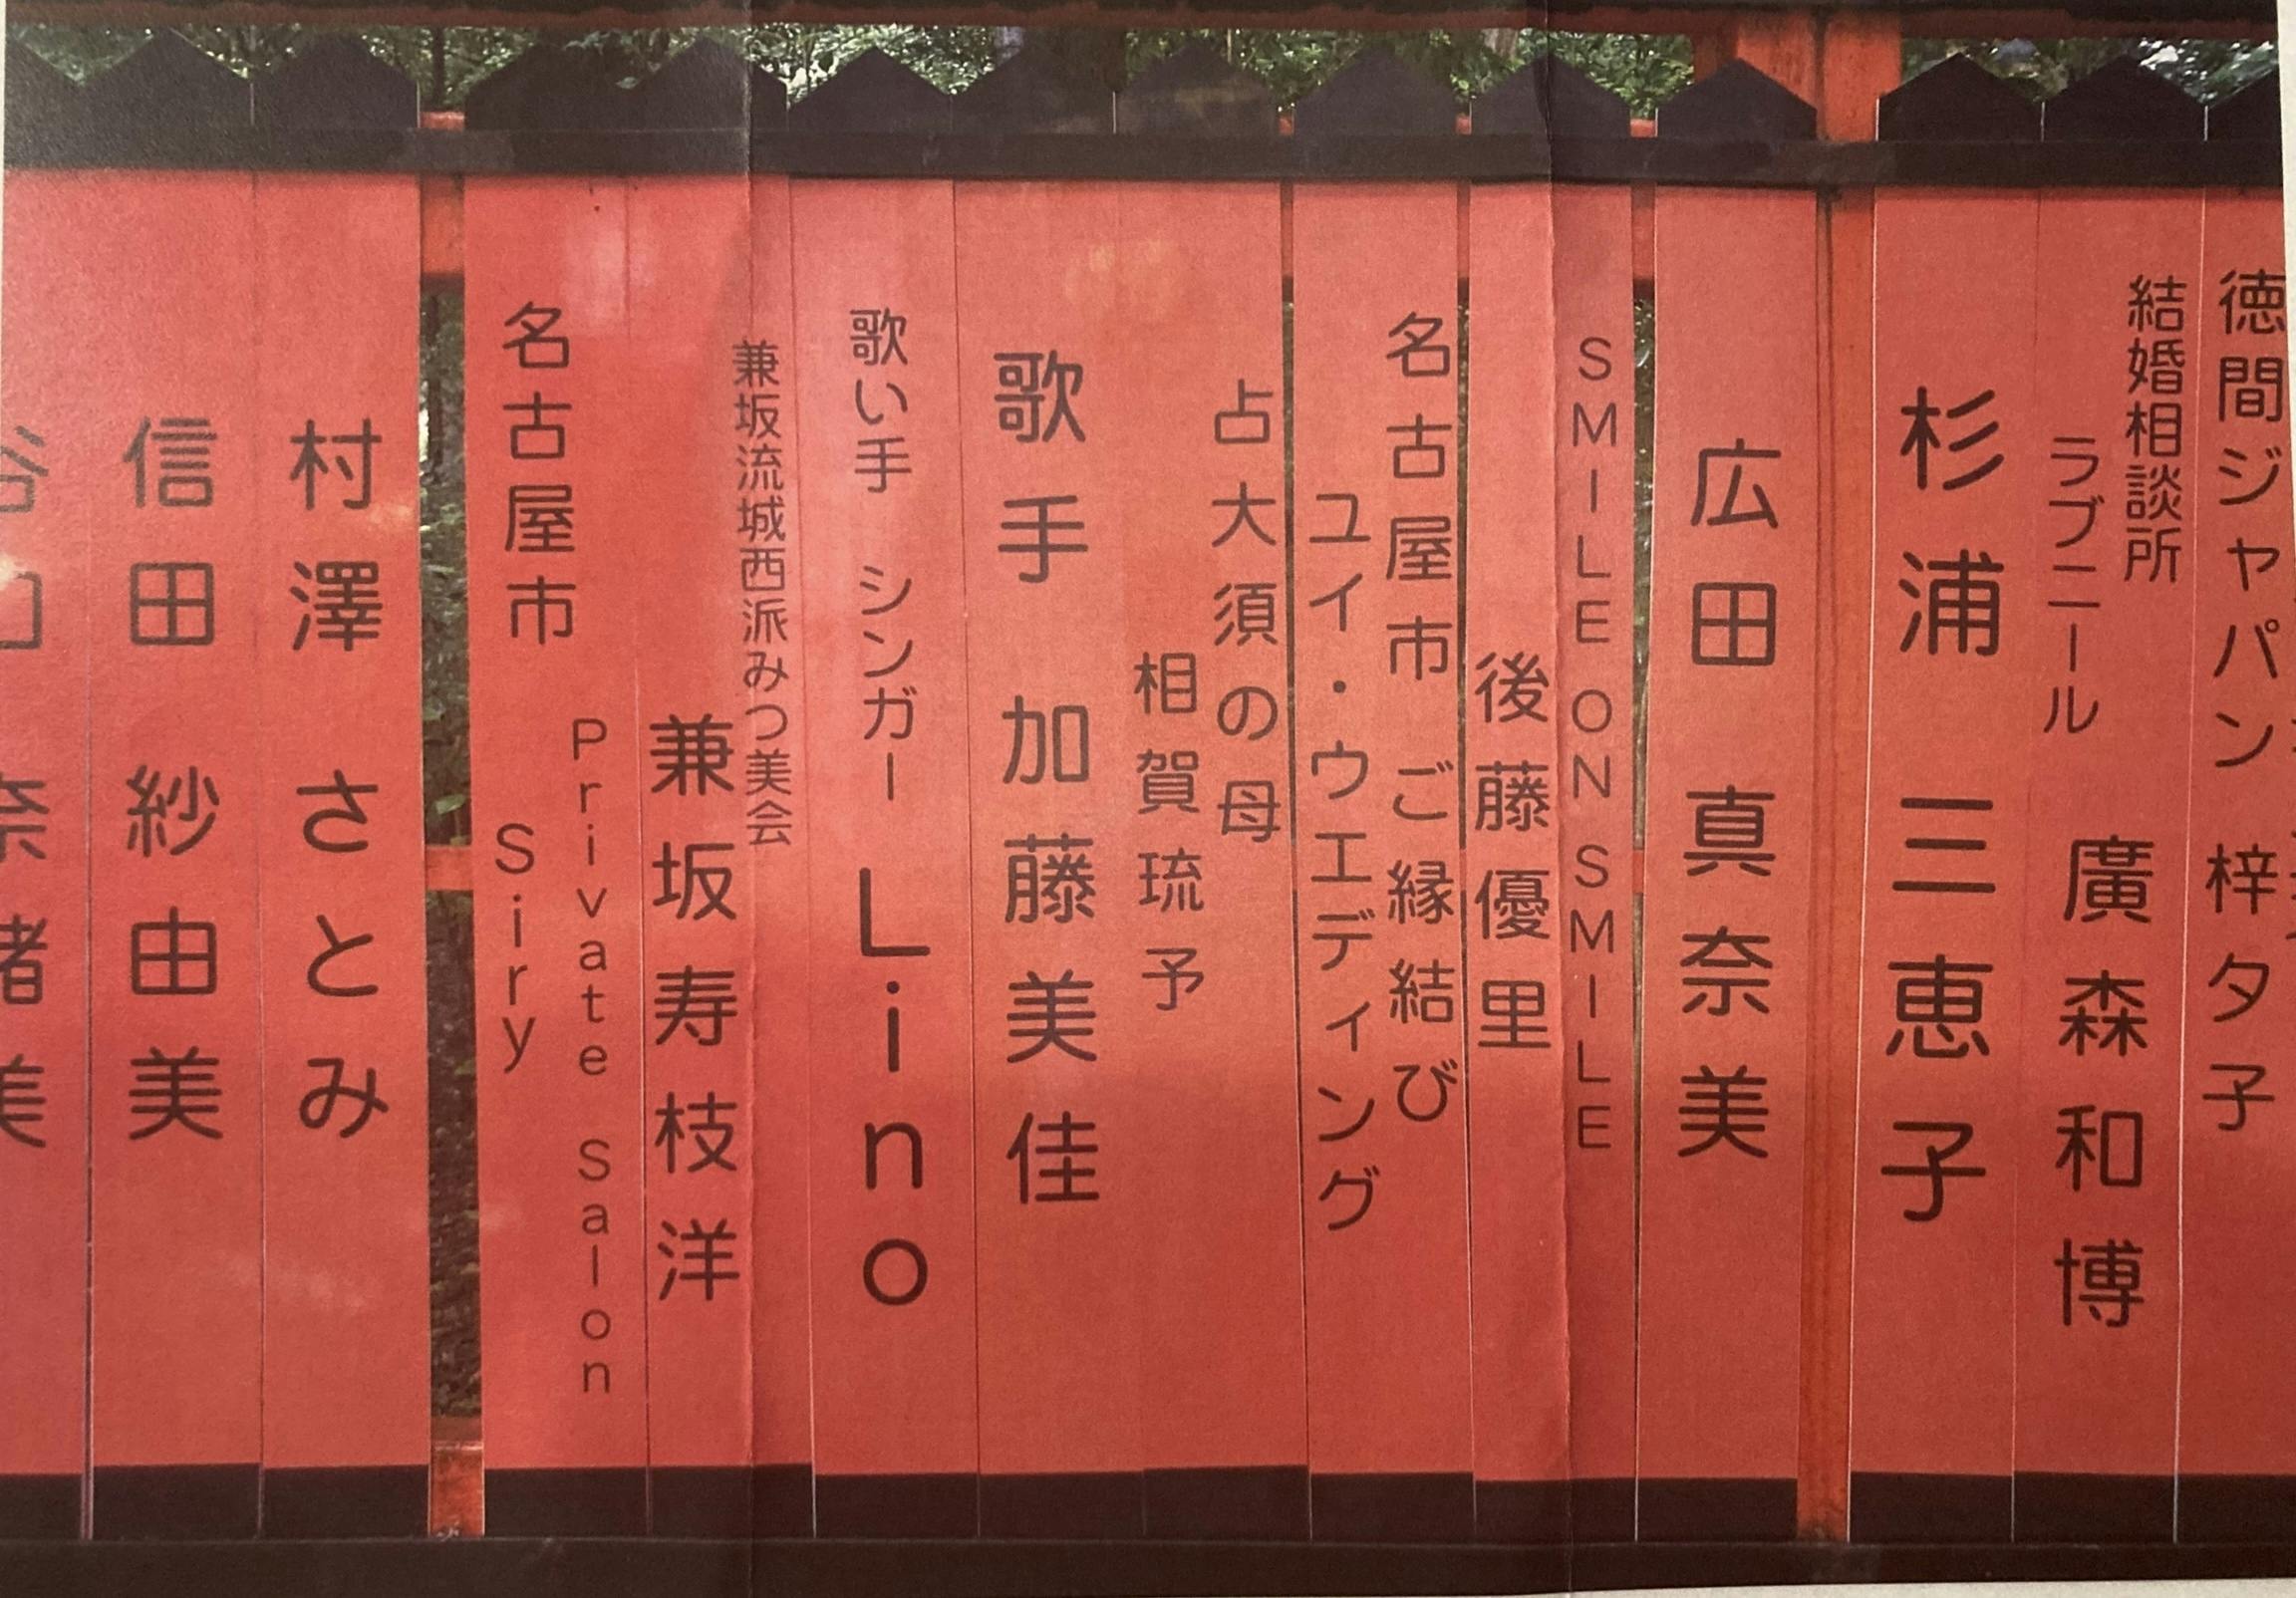 徳間ジャパン 梓夕子
結婚相談所
ラブニール 廣森和博
杉浦 三恵子
広田 真奈美
SMILE ON SMILE
後藤優里
名古屋市 ご縁結び
ユイ・ウエディング
占大須の母
相賀琉予
歌手 加藤美佳
歌い手 シンガー Lino
兼坂流城西派みつ美会
兼坂寿枝洋
名古屋市 Private Salon
Siry
村澤 さとみ
信田 紗由美